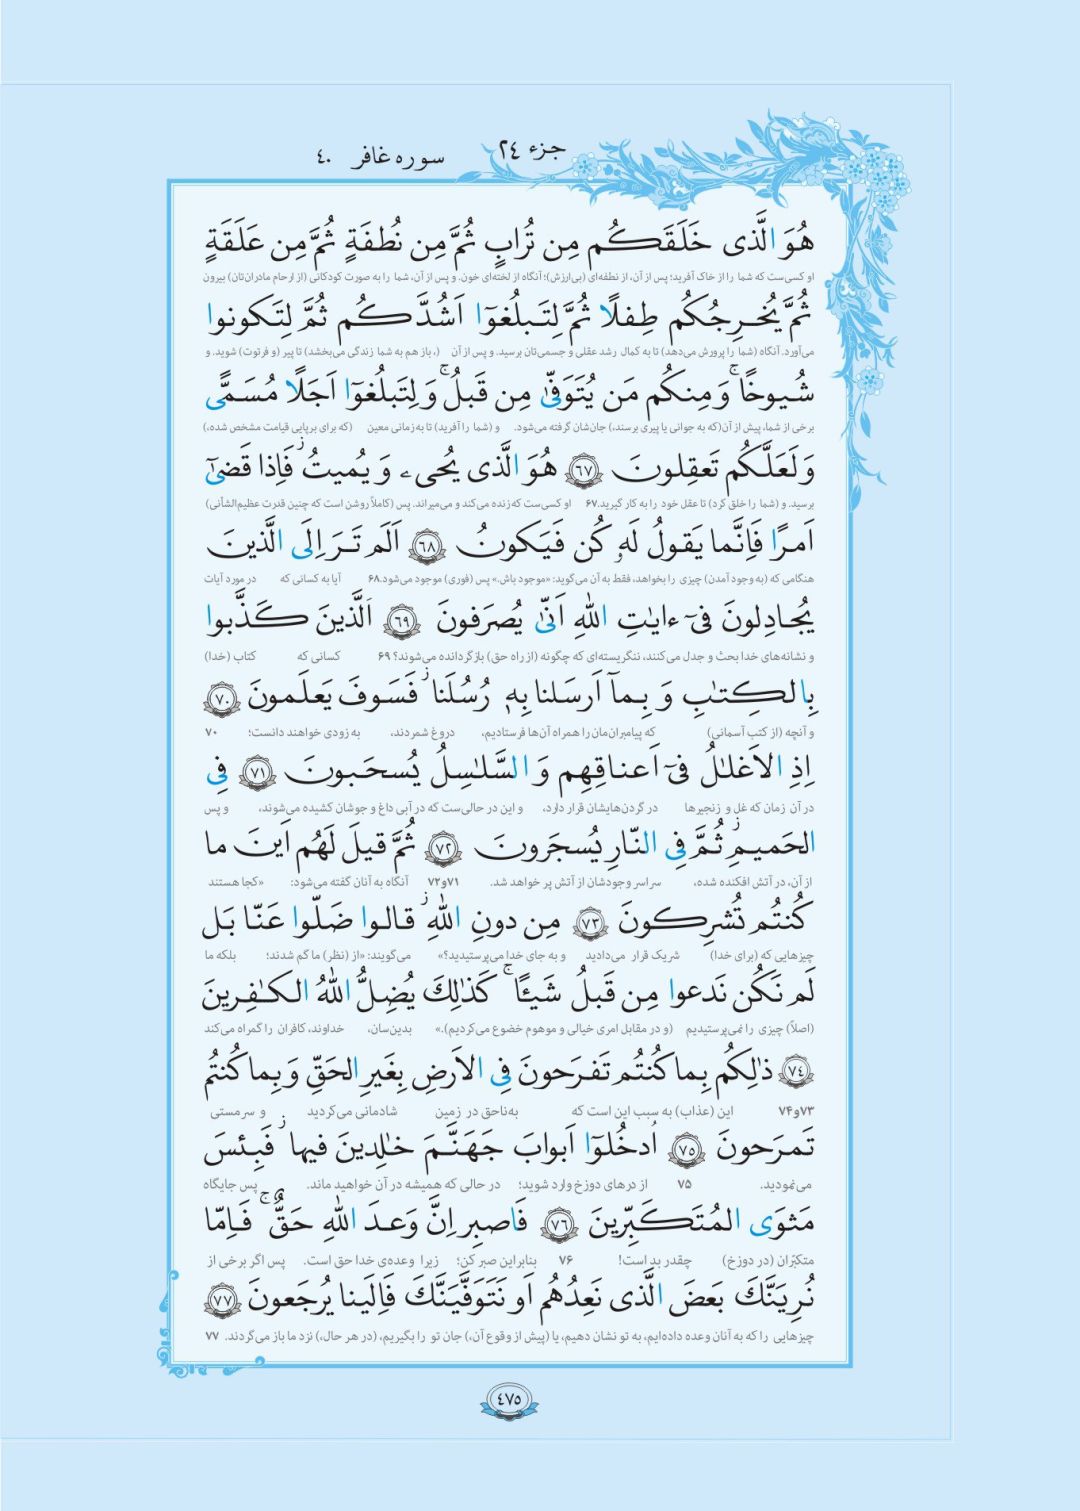 جزء ٢٤
سوره غافر ٤٠
هُوَ الَّذی خَلَقَكُم مِن تُرابٍ ثُمَّ مِن نُطفَةٍ ثُمَّ مِن عَلَقَةٍ
او کسی‌ست که شما را از خاک آفرید؛ پس از آن، از نطفه‌ای (بی‌ارزش)؛ آنگاه از لخته‌ای خون. و پس از آن، شما را به صورت کودکانی (از ارحام مادران‌تان) بیرون
ثُمَّ یُخـرِجُكُم طِفلًا ثُمَّ لِتَـبلُغوٓا اَشُدَّكُم ثُمَّ لِتَكونوا
می‌آورد. آنگاه (شما را پرورش می‌دهد) تا به کمال رشد عقلی و جسمی‌تان برسید. و پس از آن (، باز هم به شما زندگی می‌بخشد) تا پیر (و فرتوت) شوید. و
شُیوخًا ۚ وَ مِنكُم مَن یُتَوَفّیٰ مِن قَبلُ ۚ وَ لِتَبلُغوٓا اَجَلًا مُسَمًّی
برخی از شما، پیش از آن (که به جوانی یا پیری برسند،) جان‌شان گرفته می‌شود. و (شما را آفرید) تا به زمانی معین (که برای برپایی قیامت مشخص شده،)
وَ لَعَلَّكُم تَعقِلونَ ٦٧ هُوَ الَّذی یُحیی ے وَ یُمیتُ ۖ فَاِذا قَضیٰٓ
برسید. و (شما را خلق کرد) تا عقل خود را به کار گیرید. ۶۷ او کسی‌ست که زنده می‌کند و می‌میراند. پس (کاملاً روشن است که چنین قدرت عظیم‌الشأنی)
اَمرًا فَاِنَّما یَقولُ لَهٗ كُن فَیَكونُ ٦٨ اَلَم تَرَ اِلَی الَّذینَ
هنگامی که (به وجود آمدن) چیزی را بخواهد، فقط به آن می‌گوید: «موجود باش.» پس (فوری) موجود می‌شود. ۶۸ آیا به کسانی که در مورد آیات
یُجادِلونَ فیٓ ءایٰتِ اللهِ اَنّیٰ یُصرَفونَ ٦٩ اَلَّذینَ كَذَّبوا
و نشانه‌های خدا بحث و جدل می‌کنند، ننگریسته‌ای که چگونه (از راه حق) بازگردانده می‌شوند؟ ۶۹ کسانی که کتاب (خدا)
بِالكِتٰبِ وَ بِمآ اَرسَلنا بِهٖ رُسُلَنا ۖ فَسَوفَ یَعلَمونَ ٧٠
و آنچه (از کتب آسمانی) که پیامبران‌مان را همراه آن‌ها فرستادیم، دروغ شمردند، به زودی خواهند دانست؛ ۷۰
اِذِ الاَغلٰلُ فیٓ اَعناقِهِم وَ السَّلٰسِلُ یُسحَبونَ ٧١ فِی
در آن زمان که غل و زنجیرها در گردن‌هایشان قرار دارد، و این در حالی‌ست که در آبی داغ و جوشان کشیده می‌شوند، و پس
الحَمیمِ ثُمَّ فِی النّارِ یُسجَرونَ ٧٢ ثُمَّ قیلَ لَهُم اَینَ ما
از آن، در آتش افکنده شده، سراسر وجودشان از آتش پر خواهد شد. ۷۱و۷۲ آنگاه به آنان گفته می‌شود: «کجا هستند
كُنتُم تُشرِكونَ ٧٣ مِن دونِ اللهِ ۖ قالوا ضَلّوا عَنّا بَل
چیزهایی که (برای خدا) شریک قرار می‌دادید و به جای خدا می‌پرستیدید؟» می‌گویند: «از (نظر) ما گم شدند؛ بلکه ما
لَم نَكُن نَدعوا مِن قَبلُ شَیئًا ۚ كَذٰلِكَ یُضِلُّ اللهُ الكٰفِرینَ
(اصلاً) چیزی را نمی‌پرستیدیم (و در مقابل امری خیالی و موهوم خضوع می‌کردیم).» بدین‌سان، خداوند، کافران را گمراه می‌کند
٧٤ ذٰلِكُم بِما كُنتُم تَفرَحونَ فِی الاَرضِ بِغَیرِ الحَقِّ وَ بِما كُنتُم
۷۳و۷۴ این (عذاب) به سبب این است که به‌ناحق در زمین شادمانی می‌کردید و سرمستی
تَمرَحونَ ٧٥ اُدخُلوٓا اَبوابَ جَهَنَّمَ خٰلِدینَ فیها ۖ فَبِئسَ
می‌نمودید. ۷۵ از درهای دوزخ وارد شوید؛ در حالی که همیشه در آن خواهید ماند. پس جایگاه
مَثوَی المُتَكَبِّرینَ ٧٦ فَاصبِر اِنَّ وَعدَ اللهِ حَقٌّ ۚ فَاِمّا
متکبّران (در دوزخ) چقدر بد است! ۷۶ بنابراین صبر کن؛ زیرا وعده‌ی خدا حق است. پس اگر برخی از
نُرِیَنَّكَ بَعضَ الَّذی نَعِدُهُم اَو نَتَوَفَّیَنَّكَ فَاِلَینا یُرجَعونَ ٧٧
چیزهایی را که به آنان وعده داده‌ایم، به تو نشان دهیم، یا (پیش از وقوع آن،) جان تو را بگیریم، (در هر حال،) نزد ما باز می‌گردند. ۷۷
٤٧٥